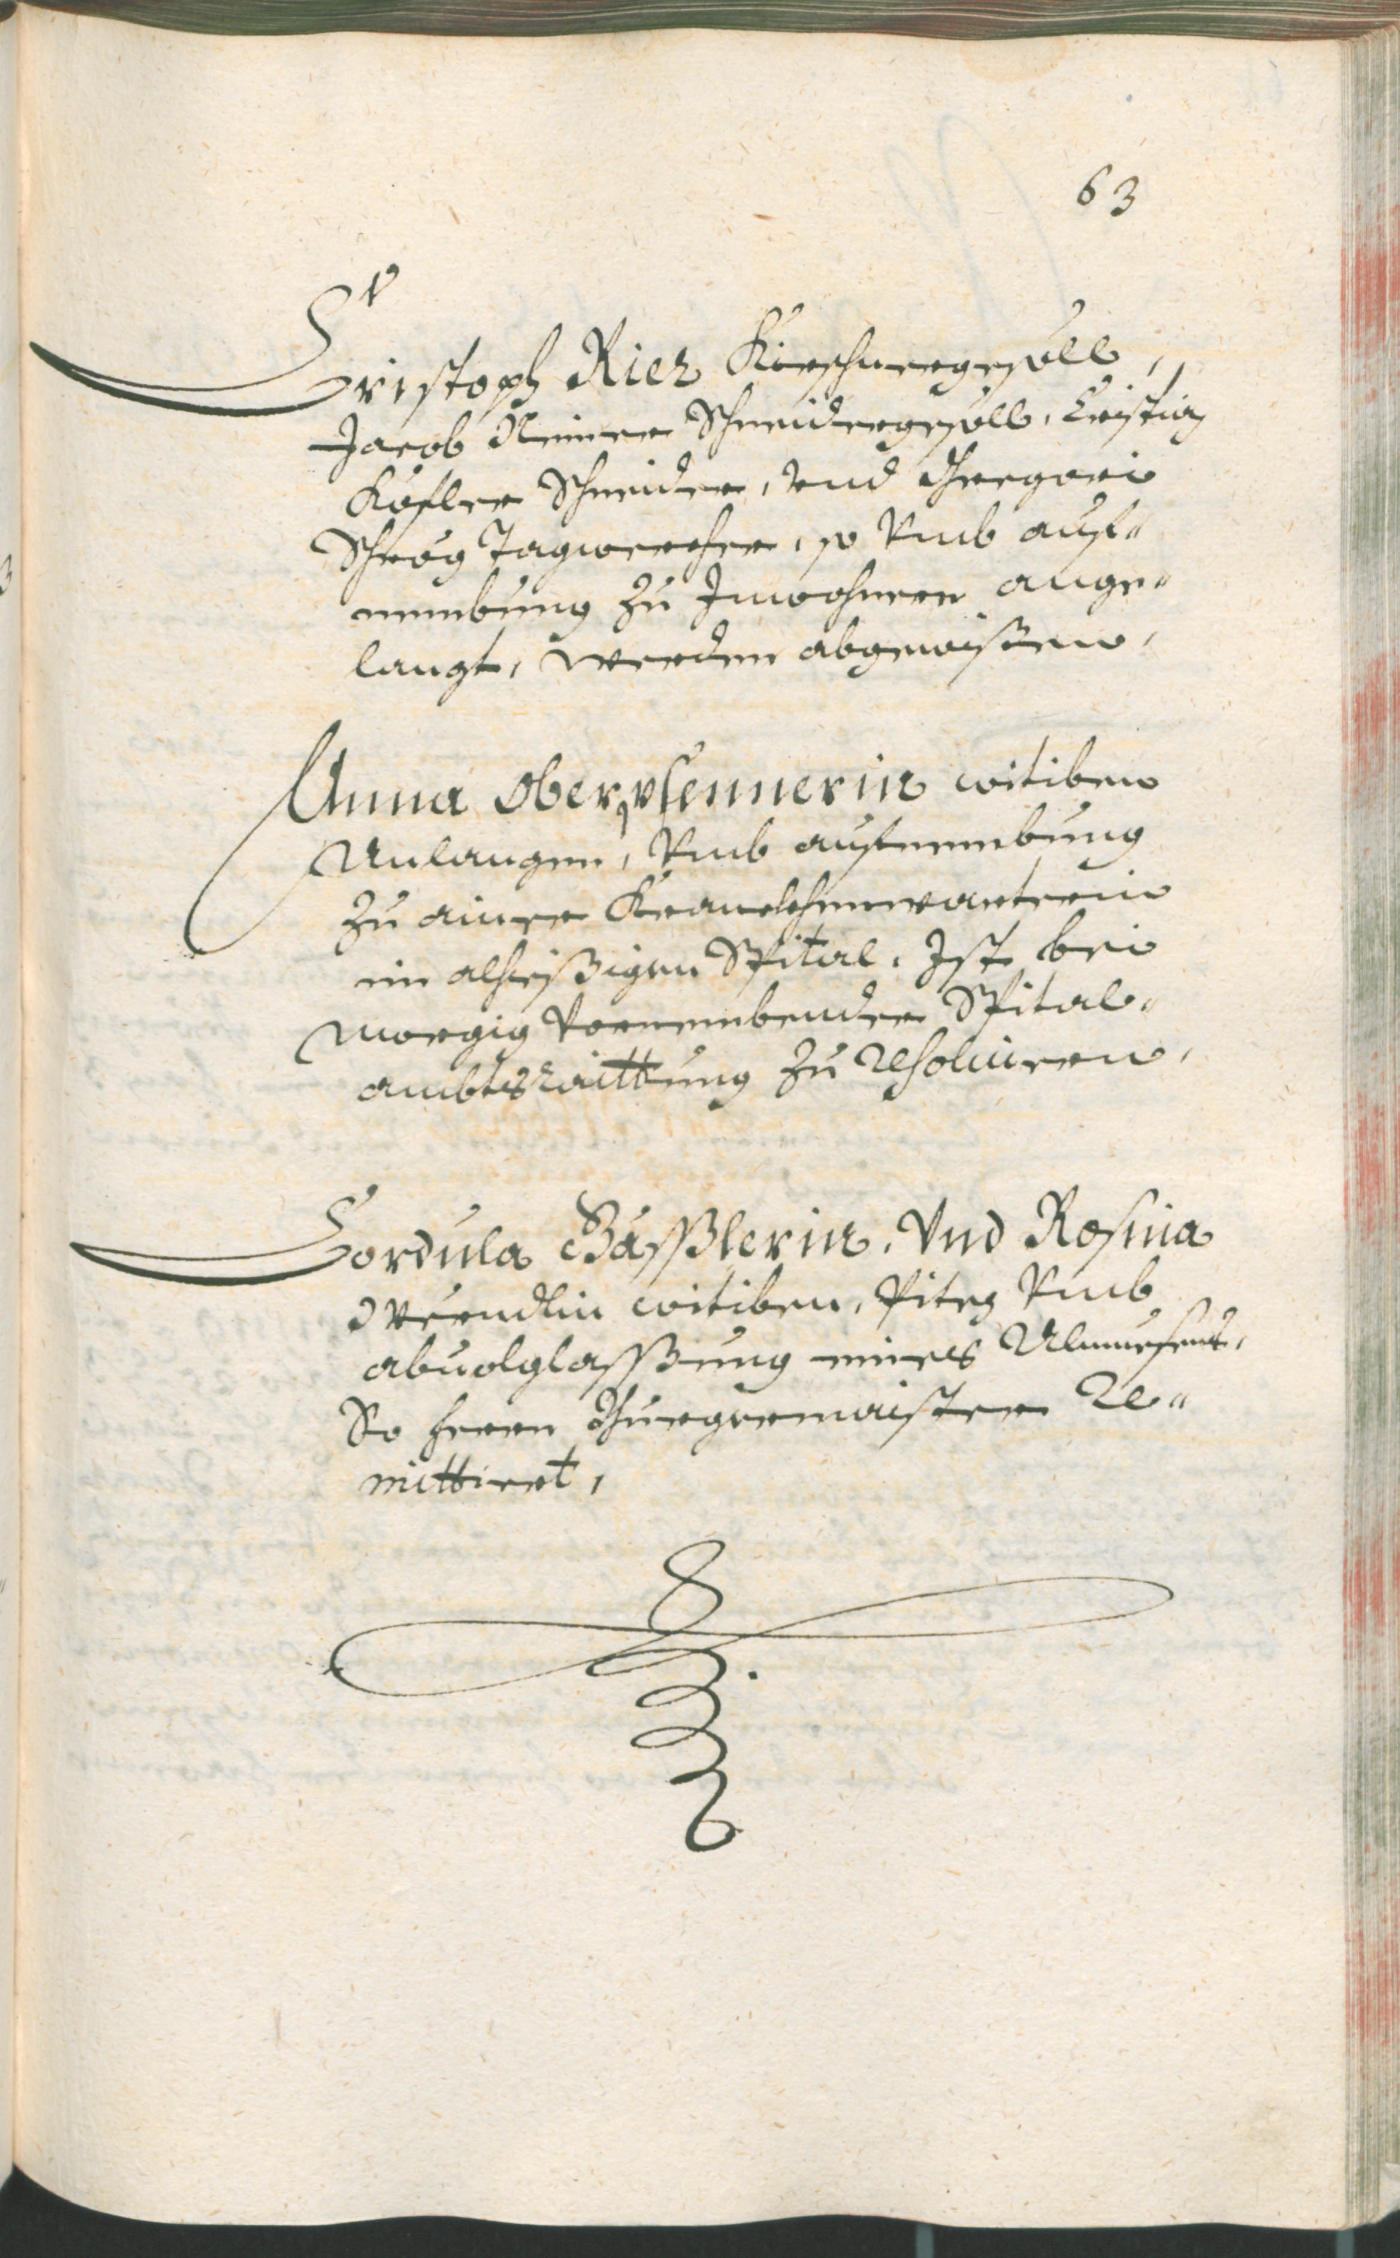 63
Christoph Riez Kirschnergesöll,
Jacob Steiner Schneidergesöll, Cristian
Kofler Schneider, vnd Gregori
Schrög Tagwercher, so vmb auf-
nembung zu Inwohnern ange-
langt, werden abgewißen,
Anna Ober witiben
Anlangen, vmb aufnembung
zu ainer Krannckhenwarterin
im alhießigen Spital. Ist bei
morgig vornembender Spital-
ambts raittung zu resoluieren,
Cordula Gässßlerin, Vnd Rosina
witiben, Piten vmb
abuolglassßung eines Almuesens,
So herrn Burgermaister re-
mittiert,